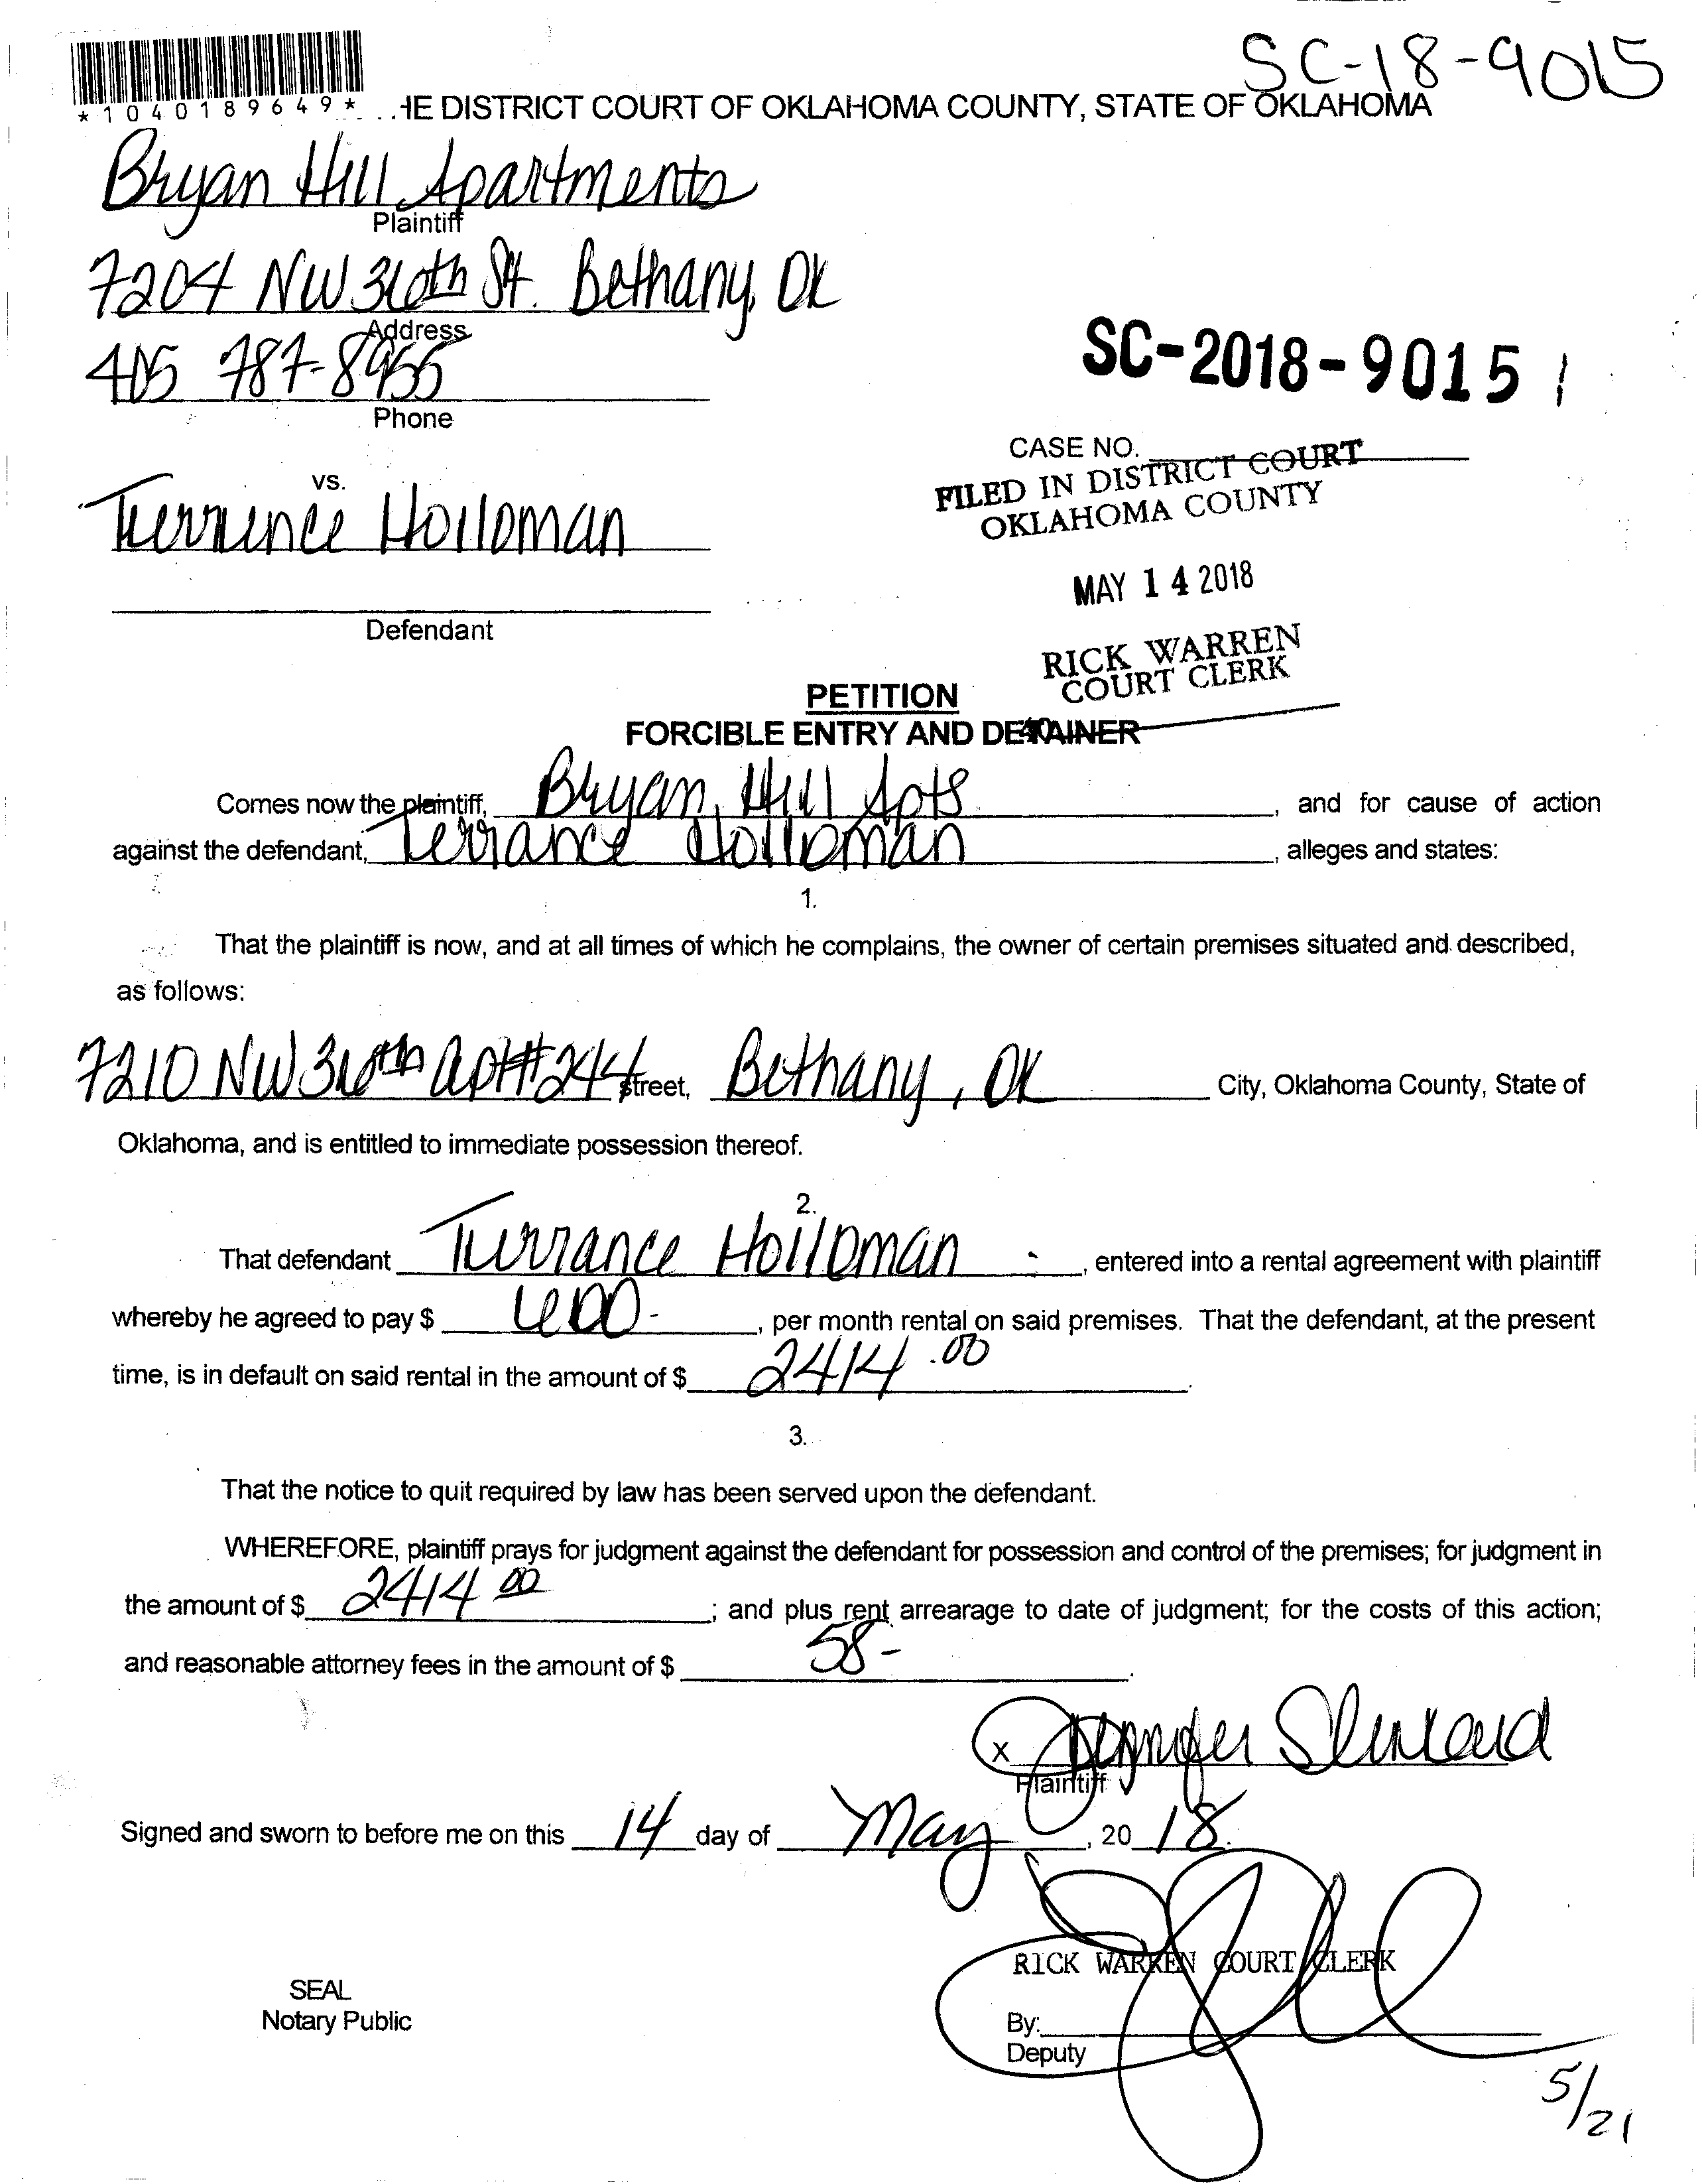 SC-18-9015
*1040189649* HE DISTRICT COURT OF OKLAHOMA COUNTY, STATE OF OKLAHOMA
Bryan Hill Apartments
Plaintiff
7204 NW 36th St. Bethany, OK
Address
405 787-8955
Phone
SC-2018-9015
CASE NO.
FILED IN DISTRICT COURT
OKLAHOMA COUNTY
vs.
Terrence Holloman
MAY 14 2018
Defendant
RICK WARREN
COURT CLERK
PETITION
FORCIBLE ENTRY AND DETAINER
Comes now the plaintiff, Bryan Hill Apts, and for cause of action
against the defendant, Terrance Holloman, alleges and states:
1.
That the plaintiff is now, and at all times of which he complains, the owner of certain premises situated and described,
as follows:
7210 NW 36th apt#244 street, Bethany, OK City, Oklahoma County, State of
Oklahoma, and is entitled to immediate possession thereof.
2.
That defendant Terrance Holloman, entered into a rental agreement with plaintiff
whereby he agreed to pay $ 600-, per month rental on said premises. That the defendant, at the present
time, is in default on said rental in the amount of $ 2414.00.
3.
That the notice to quit required by law has been served upon the defendant.
WHEREFORE, plaintiff prays for judgment against the defendant for possession and control of the premises; for judgment in
the amount of $ 2414 00; and plus rent arrearage to date of judgment; for the costs of this action;
and reasonable attorney fees in the amount of $ 58-.
x Jennifer
Plaintiff
Signed and sworn to before me on this 14 day of May, 20 18.
RICK WARREN COURT CLERK
SEAL
Notary Public
By:
Deputy
5/21